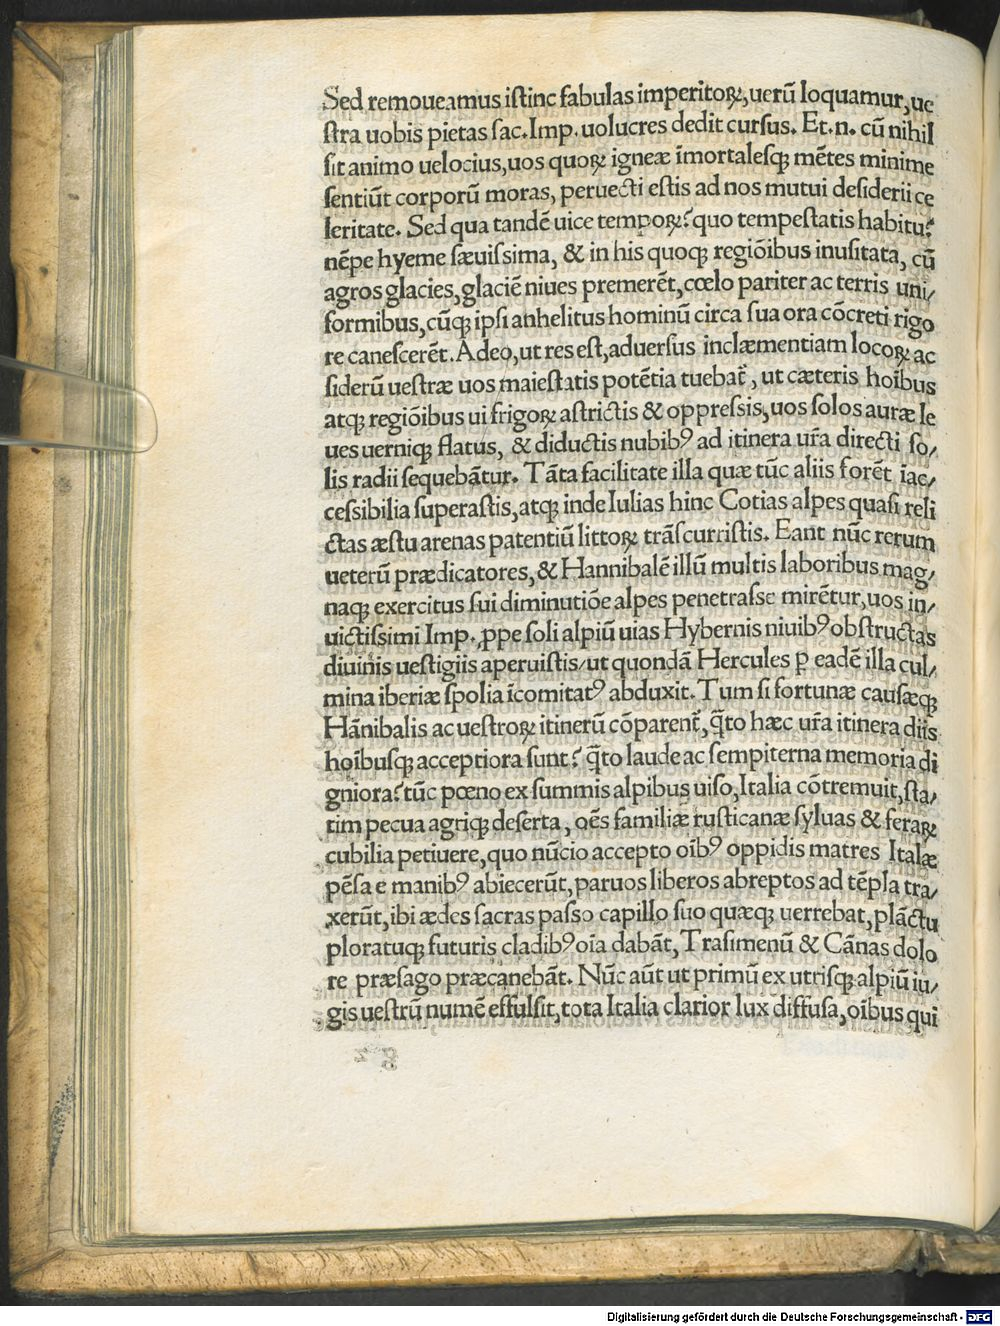 Sed remoueamus iſtinc fabulas imperitoꝝ,uerū loquamur,ue
ſtra uobis pietas ſac.Imp. uolucres dedit curſus. Et.n. cū nihil
ſit animo uelocius,uos quoꝝ igneæ īmortaleſqꝫ mētes minime
ſentiūt corporū moras, peruecti eſtis ad nos mutui deſiderii ce
leritate. Sed qua tandē uice tempoꝝ? quo tempeſtatis habitu?
nēpe hyeme ſæuiſſima, & in his quoqꝫ regiōibus inuſitata, cū
agros glacies,glaciē niues premerēt,cœlo pariter ac terris uni/
formibus,cūqꝫ ipſi anhelitus hominū circa ſua ora cōcreti rigo
re caneſcerēt.Adeo,ut res eſt,aduerſus inclæmentiam locoꝝ ac
ſiderū ueſtræ uos maieſtatis potētia tuebat̄, ut cæteris hoībus
atqꝫ regiōibus ui frigoꝝ aſtrictis & oppreſſis,uos ſolos auræ le
ues uerniqꝫ flatus, & diductis nubibꝰ ad itinera ur̄a directi ſo/
lis radii ſequebātur. Tāta facilitate illa quæ tūc aliis forēt īac/
ceſſibilia ſuperaſtis,atqꝫ inde Iulias hinc Cotias alpes quaſi reli
ctas æſtu arenas patentiū littoꝝ trāſcurriſtis. Eant nūc rerum
ueterū prædicatores,& Hannibalē illū multis laboribus mag/
naqꝫ exercitus ſui diminutiōe alpes penetraſſe mirētur,uos in/
uictiſſimi Imp.,ꝓpe ſoli alpiū uias Hybernis niuibꝰ obſtructas
diuinis ueſtigiis aperuiſtis/ut quondā Hercules ꝑ eadē illa cul/
mina iberiæ ſpolia īcomitatꝰ abduxit. Tum ſi fortunæ cauſæqꝫ
Hānibalis ac ueſtroꝝ itinerū cōparent̄, q̄to hæc ur̄a itinera diis
hoībuſqꝫ acceptiora ſunt? q̄to laude ac ſempiterna memoria di
gniora? tūc pœno ex ſummis alpibus uiſo,Italia cōtremuit,ſta/
tim pecua agriqꝫ deſerta, oēs familiæ ruſticanæ ſyluas & feraꝝ
cubilia petiuere,quo nūcio accepto oībꝰ oppidis matres Italæ
pēſa e manibꝰ abiecerūt,paruos liberos abreptos ad tēpla tra/
xerūt,ibi ædes ſacras paſſo capillo ſuo quæqꝫ uerrebat,plāctu
ploratuqꝫ futuris cladibꝰ oīa dabāt, Traſimenū & Cānas dolo
re præſago præcanebāt. Nūc aūt ut primū ex utriſqꝫ alpiū iu/
gis ueſtrū numē effulſit,tota Italia clarior lux diffuſa,oībus qui
Digitalisierung gefördert durch die Deutsche Forschungsgemeinschaft - DFG